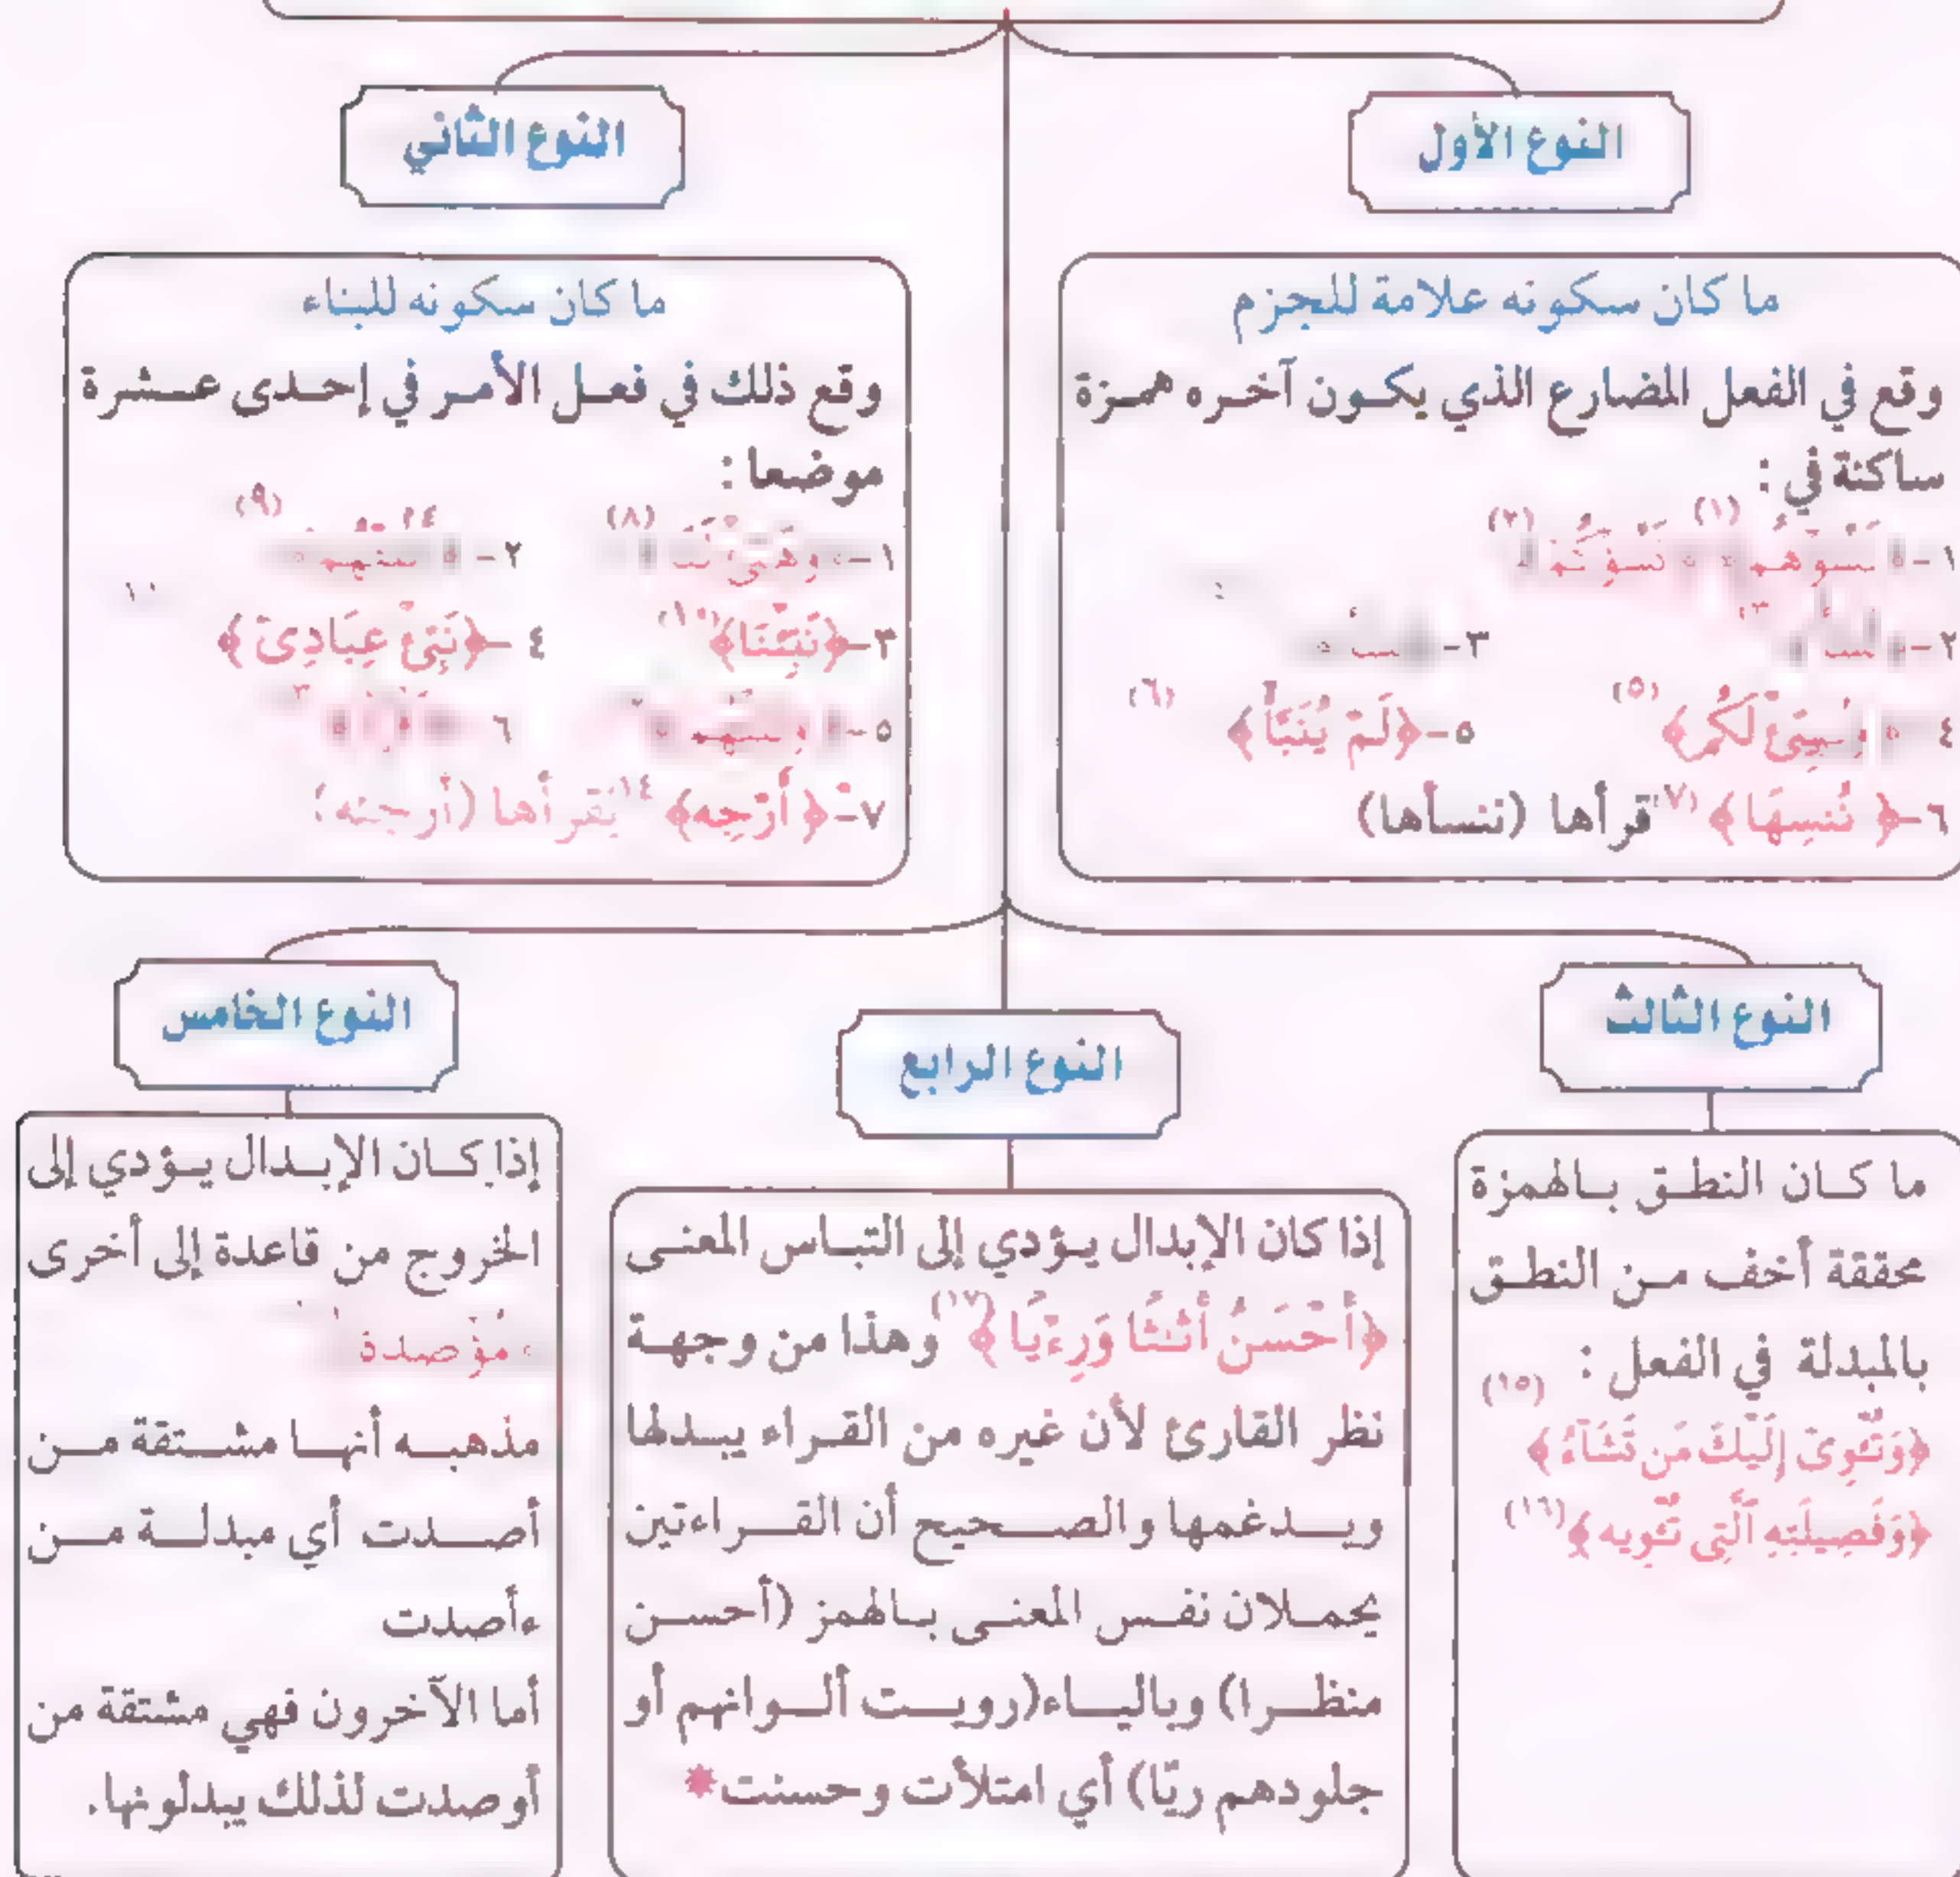 النوع الأول
ما كان سكونه علامة للجزم
وقع في الفعل المضارع الذي يكون آخره همزة
ساكنة في :
١- (١) (٢)
٢- ٣-
٤ لَكُمْ﴾ (٥) ٥-﴿لَمْ يُنَبَّأْ﴾ (٦)
٦-﴿ نُنسِهَا﴾ (٧) قرأها (ننسأها)
النوع الثاني
ما كان سكونه للبناء
وقع ذلك في فعل الأمر في إحدى عشرة
موضعا :
١- وَهَيِّئْ لَنَا (٨) ٢- (٩)
٣-﴿نَبِّئْنَا﴾ (١٠) ٤ -﴿نَبِّئْ عِبَادِىٓ ﴾
٥- ٦
٧-﴿ أَرْجِه﴾ ١٤ يقرأها (أرجئه)
النوع الثالث
ما كان النطق بالهمزة
محققة أخف من النطق
بالمبدلة في الفعل :
﴿وَتُـْٔوِىٓ إِلَيْكَ مَن تَشَآءُ﴾ (١٥)
﴿وَفَصِيلَتِهِ ٱلَّتِى تُـْٔوِيه﴾ (١٦)
النوع الرابع
إذا كان الإبدال يؤدي إلى التباس المعنى
﴿أَحْسَنُ أَثَٰثًا وَرِءْيًا ﴾ (١٧) وهذا من وجهة
نظر القارئ لأن غيره من القراء يبدلها
ويدغمها والصحيح أن القراءتين
يحملان نفس المعنى بالهمز (أحسن
منظرا) وبالياء (رويت ألوانهم أو
جلودهم ريّا) أي امتلأت وحسنت*
النوع الخامس
إذا كان الإبدال يؤدي إلى
الخروج من قاعدة إلى أخرى
مؤصدة
مذهبه أنها مشتقة من
أصدت أي مبدلة من
ءأصدت
أما الآخرون فهي مشتقة من
أوصدت لذلك يبدلونها.